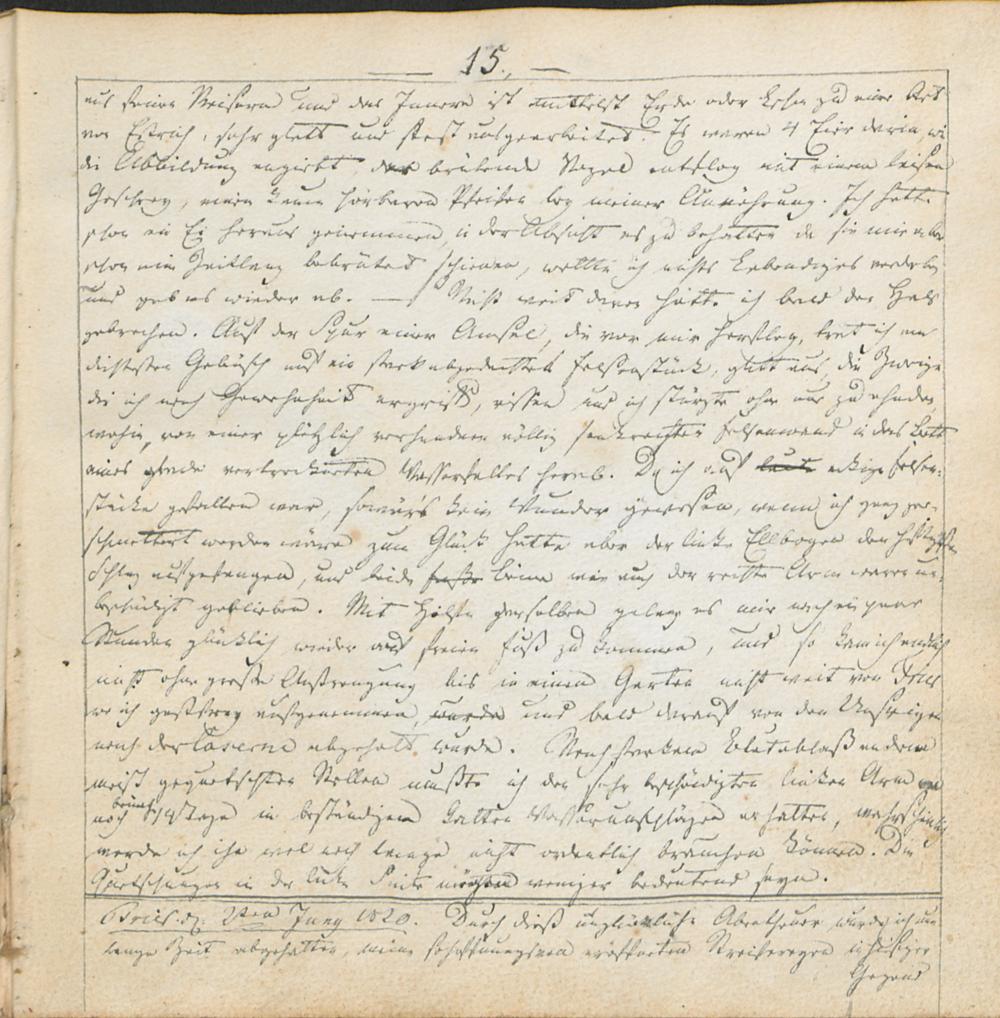 — 15. —
aus feinen Reisern und das Innere ist mittelst Erde oder Lehm zu einer Art
von Estrich, sehr glatt und fest ausgearbeitet. Es waren 4 Eier darin, wie
die Abbildung zeigt, der brütende Vogel entflog mit einem leisen
Geschrey, einem kaum hörbaren Pfeifen bey meiner Annährung. Ich hatte
schon ein Ei heraus genommen, in der Absicht es zu behalten da sie mir aber
schon eine Zeitlang bebrütet schienen, wollte ich nichts Lebendiges verderben
und gab es wieder ab. — Nicht weit davon hätte ich bald den Hals
gebrochen. Auf der Spur einer Amsel, die vor mir herflog, trat ich im
dichtesten Gebüsch auf ein stark abgedachtes Felsenstück, glitt aus, die Zweige
die ich nach Gewohnheit ergriff, rissen und ich stürzte ohne nur zu ahnden,
wohin, von einer plötzlich vorhandenen völlig senkrechten Felsenwand in das Bett
eines gerade vertrockneten Wasserfalles herab. Da ich auf lauter eckige Felsen-
stücke gefallen war, so wär's kein Wunder gewesen, wenn ich ganz zer-
schmettert worden wäre zum Glück hatte aber der linke Ellbogen den heftigsten
Schlag aufgefangen, und beide Beine wie auch der rechte Arm waren un-
beschädigt geblieben. Mit Hülfe derselben gelang es mir nach ein paar
Stunden glücklich wieder auf freien Fuß zu kommen, und so kam ich endlich
nicht ohne große Anstrengung bis in einen Garten nicht weit von
wo ich gastfrey aufgenommen, wurde und bald darauf von den Unsrigen
nach der Caserne abgeholt wurde. Nach starkem Blutablaß an denen
meist gequetschten Stellen mußte ich den sehr beschädigten linken Arm
noch beinah Tage in beständigen kalten Wasserumschlägen erhalten, wahrscheinlich
werde ich ihn wol noch lange nicht ordentlich brauchen können. Die
Quetschungen in der linken Seite möchten weniger bedeutend seyn.
2ten Juny 1820. Durch dieß unglückliche Abentheuer, wurde ich eine
lange Zeit abgehalten, meine hoffnungsvoll eröffneten Streifereyen in hiesiger
Gegend